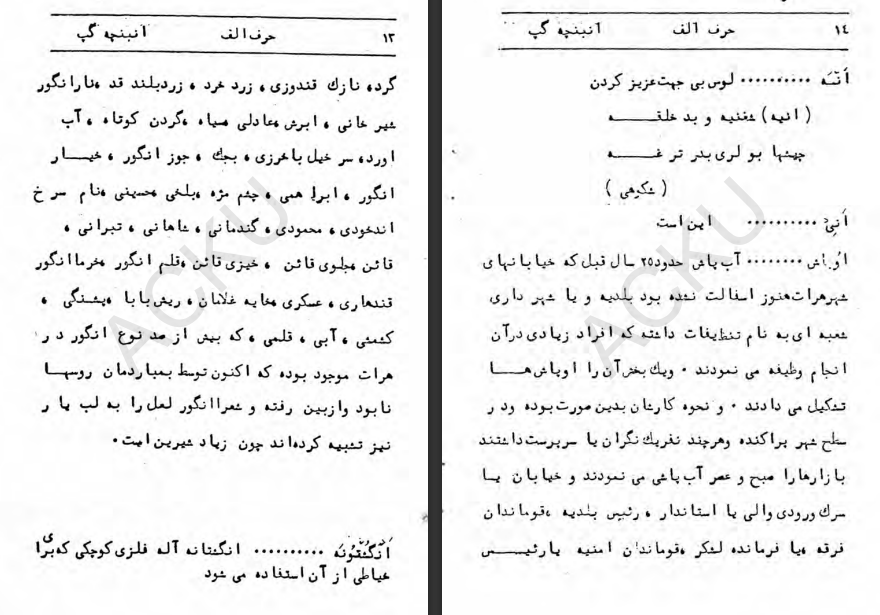 انبنچه گپ حرف الف ١٣
گرده نازك قندوزی ، زرد خرد ، زردبلند قد ،نارانگور
شیر خانی ، ابرش ،عادلی سیاه ،گردن كوتاه ، آب
اورده سر خیل باخرزی ، بجك ، جوز انگور ، خیــار
انگور ، ابرا همی ، چشم مژه ،بلخی ،حسینی ،نام سر خ
اندخودی ، محمودی ، گندمانی ، شاهانی ، تبرانی ،
قائن ،جلوی قائن ، خیزی قائن ،قلم انگور ،خرماانگور
قندهاری ، عسكری ،خایه غلامان ، ریش بابا ،پشنگی ،
كشمشی ، آبی ، قلمی ، كه بیش از صد نوع انگور در
هرات موجود بوده كه اكنون توسط بمباردمان روسهـا
نابود وازبین رفته و شعراانگور لعل را به لب یا ر
نیز تشبیه كرده‌اند چون زیاد شیرین است.
اَنگُشتُونَه .......... انگشتانه آله فلزی كوچكی كه برا ی
خیاطی از آن استفاده می شود
انبنچه گپ حرف الف ١٤
اَنَّه .......... لوس بی جهت عزیز كردن
( انیه ) شفنیه و بد خلقــــه
چیتها بو لری بدر تر غــــه
( شكوهی )
اَنِیْ .......... این است
اوُپاش ........ آب پاش حدود ٢٥ سال قبل كه خیابانهای
شهرهرات هنوز اسفالت نشده بود بلدیه و یا شهر داری
شعبه ای به نام تنظیفات داشته كه افراد زیادی درآن
انجام وظیفه می نمودند . ویك بخش آن را اوپاش هــا
تشكیل می دادند . و نحوه كارشان بدین صورت بوده ود ر
سطح شهر پراكنده وهرچند نفریك نگران یا سرپرست داشتند
بازارهارا صبح و عصر آب پاشی می نمودند و خیابان یـا
سرك ورودی والی یا استاندار ، رئیس بلدیه ،قوماندان
فرقه ،یا فرمانده لشكر ،قوماندان امنیه یارئیـــس